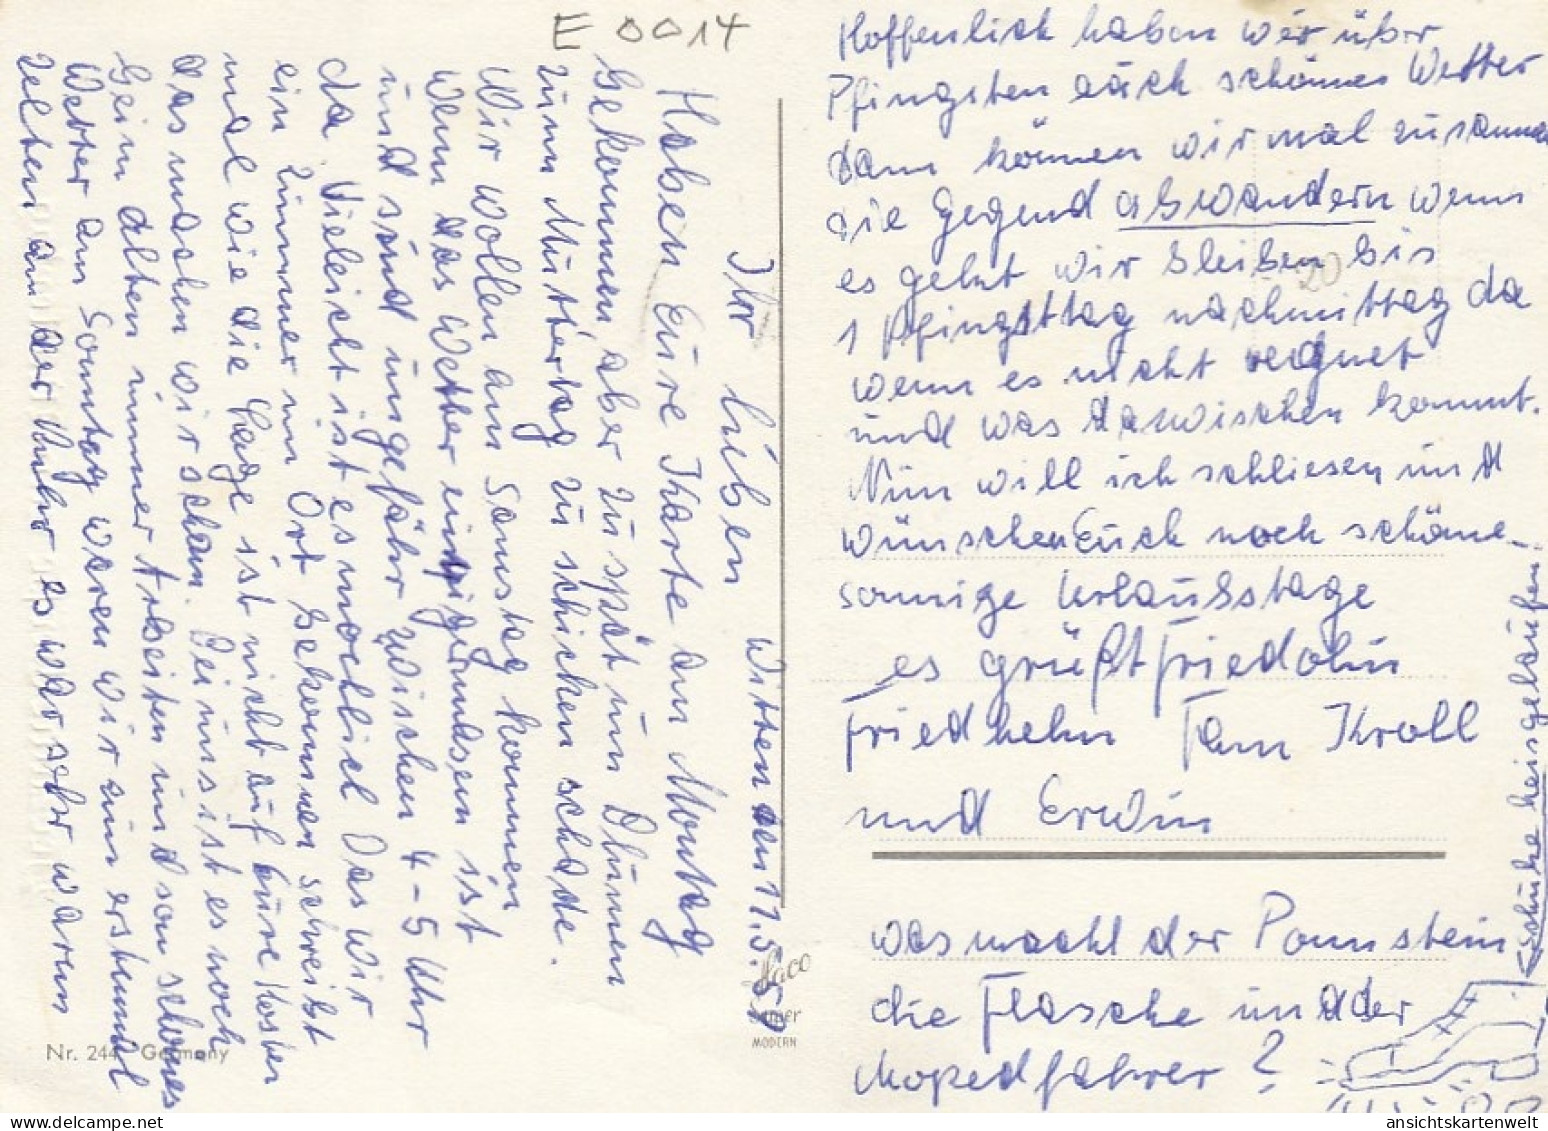 E 0014
Witten den 11.5.59
Ihr Liben
Haben Eure Karte am Montag
bekommen, aber zu spät um Blumen
zum Muttertag zu schicken schade.
Wir wollen am Samstag kommen
wenn das Wetter einigermasen ist
und sind ungefähr zwischen 4-5 Uhr
da Vieleicht ist es möchlich Das wir
ein Zimmer im Ort bekommen schreibt
mal wie die Lage ist nicht auf Eure Kosten
das machen wir schon. Bei uns ist es noch
beim alten immer Arbeiten und son schönes
Wetter am Sonntag waren wir zum erstenmal
zelten an der Ruhr es war sehr warm
Hoffenlich haben wir über
Pfingsten auch schönes Wetter
dann können wir mal zusammen
die Gegend abwandern wenn
es geht wir bleiben bis
1 Pfingsttag nachmittag da
wenn es nicht regnet
und was dazwischen kommt.
Nun will ich schliesen und
wünschen Euch noch schöne
sonnige Urlaubstage
es grüßt Friedolin
Friedhelm Fam Kroll
und Erwin
was macht der Ponnstein
die Flasche und der
Mopedfahrer?
heisgelaufen
20
Nr. 244 Germany
MODERN
ansichtskartenwelt